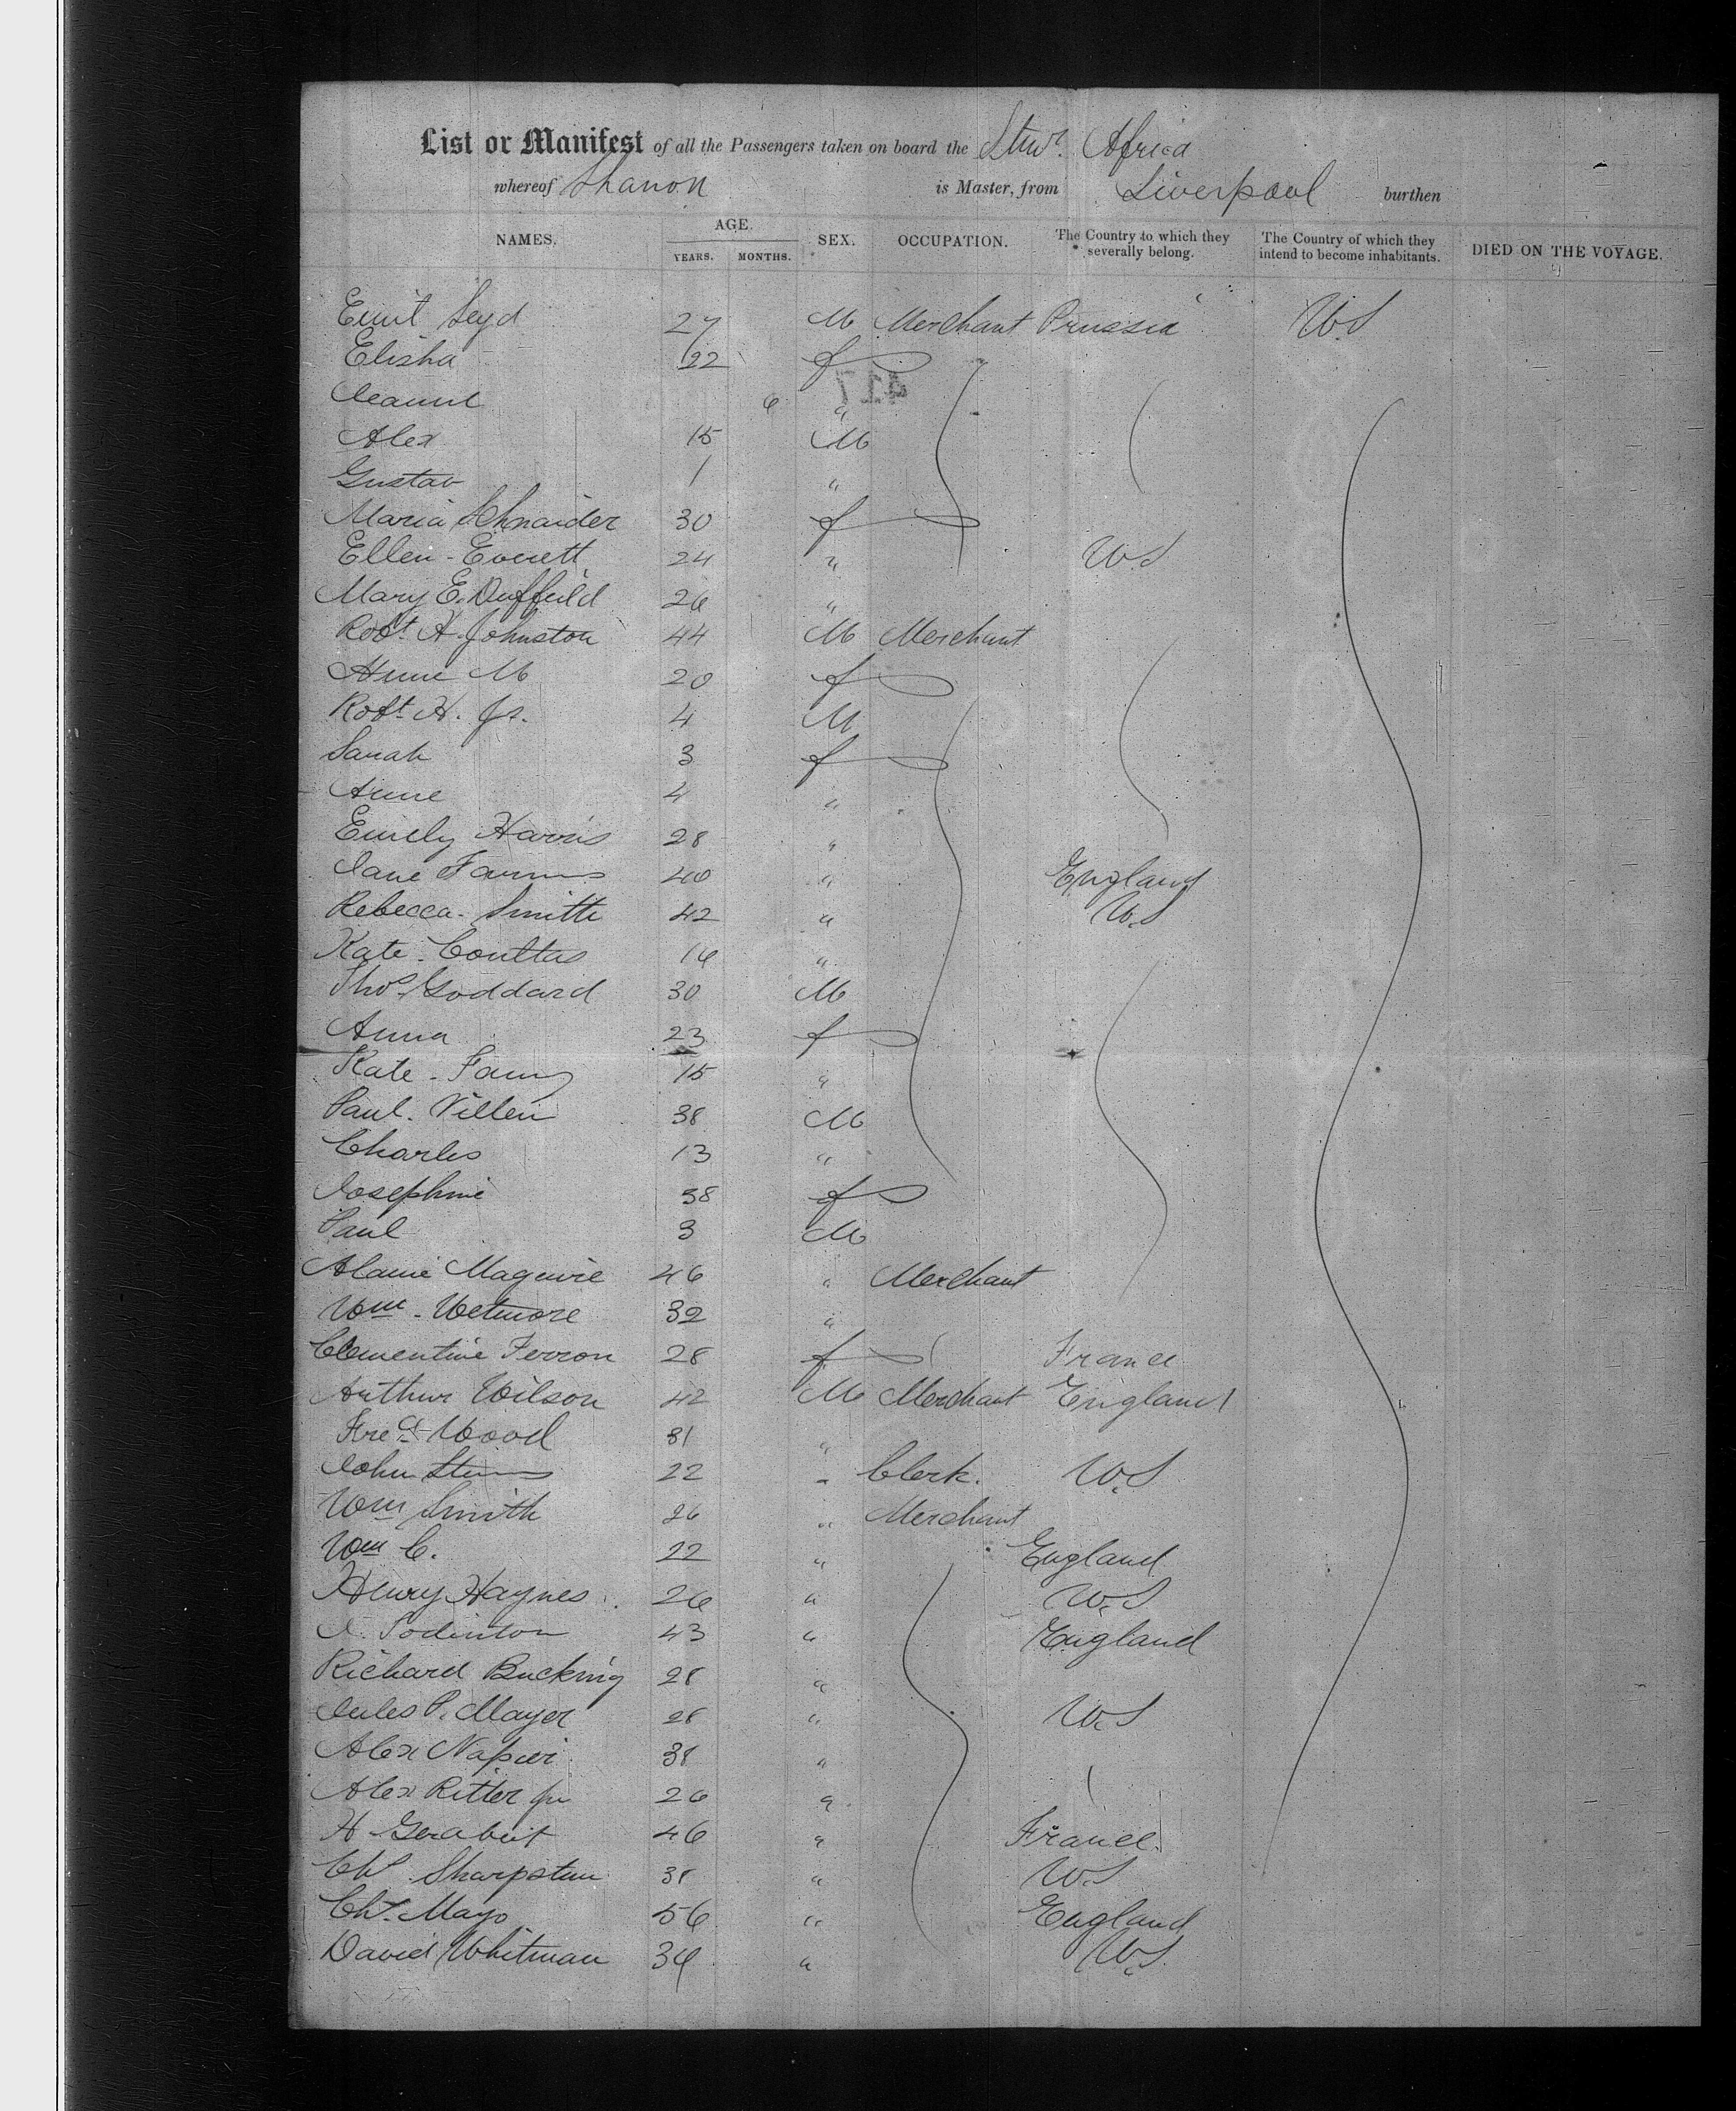 List or Manifest of all the Passengers taken on board the Stmr. Africa
whereof Shanon is Master, from Liverpool burthen
NAMES. AGE. YEARS. MONTHS. SEX. OCCUPATION. The Country to which they severally belong. The Country of which they intend to become inhabitants. DIED ON THE VOYAGE.
Emil Seyd 27 M Merchant Prussia U.S
Elisha 22 f
417
6 "
Alex 15 M
Gustav 1 "
Maria Schnaider 30 f
Ellen - Everett 24 " U.S
Mary E. Duffeild 26 "
Robt. H. Johnston 44 M Merchant
Anne M 20 f
Robt H. Jr. 4 M
Sarah 3 f
Anne 4 "
Emely Harris 28 "
Jane 40 " England
Rebecca - Smith 42 " U.S
Kate - Coulttas 16 "
Thos. Goddard 30 M
Anna 23 f
Kate - 15 "
Paul. Villen 38 M
Charles 13 "
Josephine 38 f
Paul 3 M
Maguire 46 " Merchant
Wm - Wetmore 32 "
Clementine Ferron 28 f France
Arthur Wilson 42 M Merchant England
Fred Wood 31 "
John 22 " Clerk. U.S
Wm Smith 26 " Merchant
Wm C. 22 " England
Henry Haynes. 26 " U.S
43 " England
Richard Bucking 28 "
Jules P. Mayer 28 " U.S
Alex Napier 38 "
Alex Ritter Jr 26 "
H - 46 " France.
Chs. Sharpsteen 38 " U.S
Chs. Mayo 56 " England
David Whitman 34 " U.S.